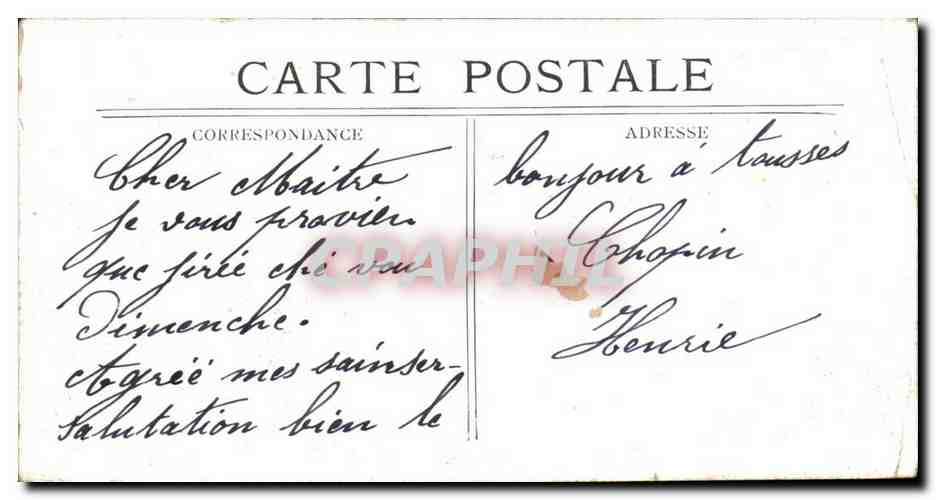 CARTE POSTALE
CORRESPONDANCE
Cher Maitre
Je vous provien
que jirée ché vou
Dimenche.
Agréé mes sainser-
salutation bien le
ADRESSE
bonjour à tousses
Chopin
Henrie
CPAPHIL